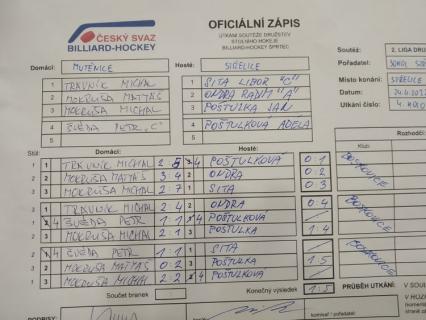 ČESKÝ SVAZ
BILLIARD-HOCKEY
OFICIÁLNÍ ZÁPIS
UTKÁNÍ SOUTĚŽE DRUŽSTEV
STOLNÍHO HOKEJE
BILLIARD-HOCKEY ŠPRTEC
Domácí: MUTĚNICE Hosté: STŘELICE
Soutěž: 2. LIGA DRU
Pořadatel: SOKOL
Místo konání: STŘELICE
Datum:
Utkání číslo: 4. KOLO
1 TRÁVNÍK MICHAL 1 SITA LIBOR "C"
2 MOKRUŠA MATYÁŠ 2 ONDRA RADIM "A"
3 MOKRUŠA MICHAL 3 POŠTULKA JAN
4 ŠVÉDA PETR "C" 4 POŠTULKOVÁ ADÉLA
5 5
Rozhodčí
Stůl: Domácí: Hosté: Klub:
1 1 TRÁVNÍK MICHAL 2:5 4 POŠTULKOVÁ 0:1 BOSKOVICE
2 2 MOKRUŠA MATYÁŠ 3:4 2 ONDRA 0:2
3 3 MOKRUŠA MICHAL 2:7 1 SITA 0:3
3 1 TRÁVNÍK MICHAL 2:4 2 ONDRA 0:4 BOSKOVICE
1 4 ŠVÉDA PETR 1:1 4 POŠTULKOVÁ
2 3 MOKRUŠA MICHAL 2:1 3 POŠTULKA 1:4
2 4 ŠVÉDA PETR 1:1 1 SITA BOSKOVICE
3 2 MOKRUŠA MATYÁŠ 0:2 3 POŠTULKA 1:5
1 3 MOKRUŠA MICHAL 2:2 4 POŠTULKOVÁ
Součet branek Konečný výsledek 1:5
PRŮBĚH UTKÁNÍ:
PODPISY:
komisař / pořadatel: